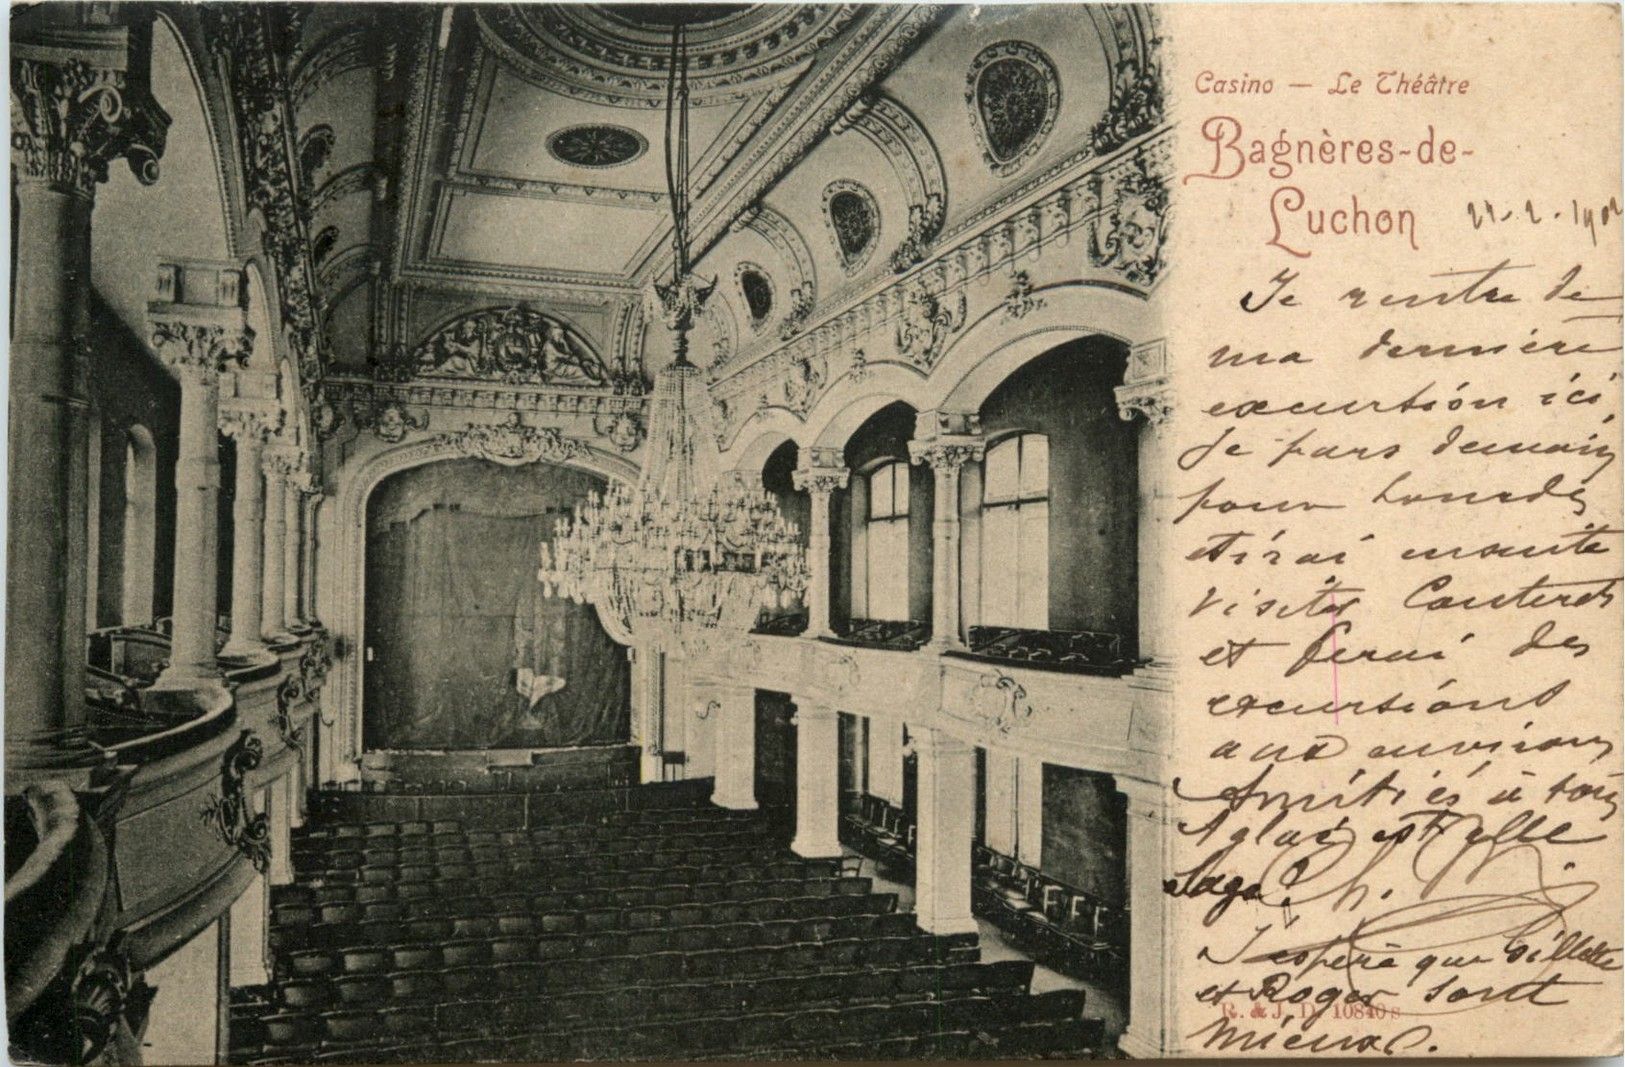 Casino — Le Théâtre
Bagnères-de-
Luchon
Je rentre de
ma dernière
excursion ici,
Je pars demain
pour Lourdes
et irai ensuite
visiter Cauterets
et ferai des
excursions
aux environs
Amitiés à tous
Aglaé est elle
sage?
Ch.
J'espère que Gillette
et Roger sont
mieux.
R. & J. D. 10840 s